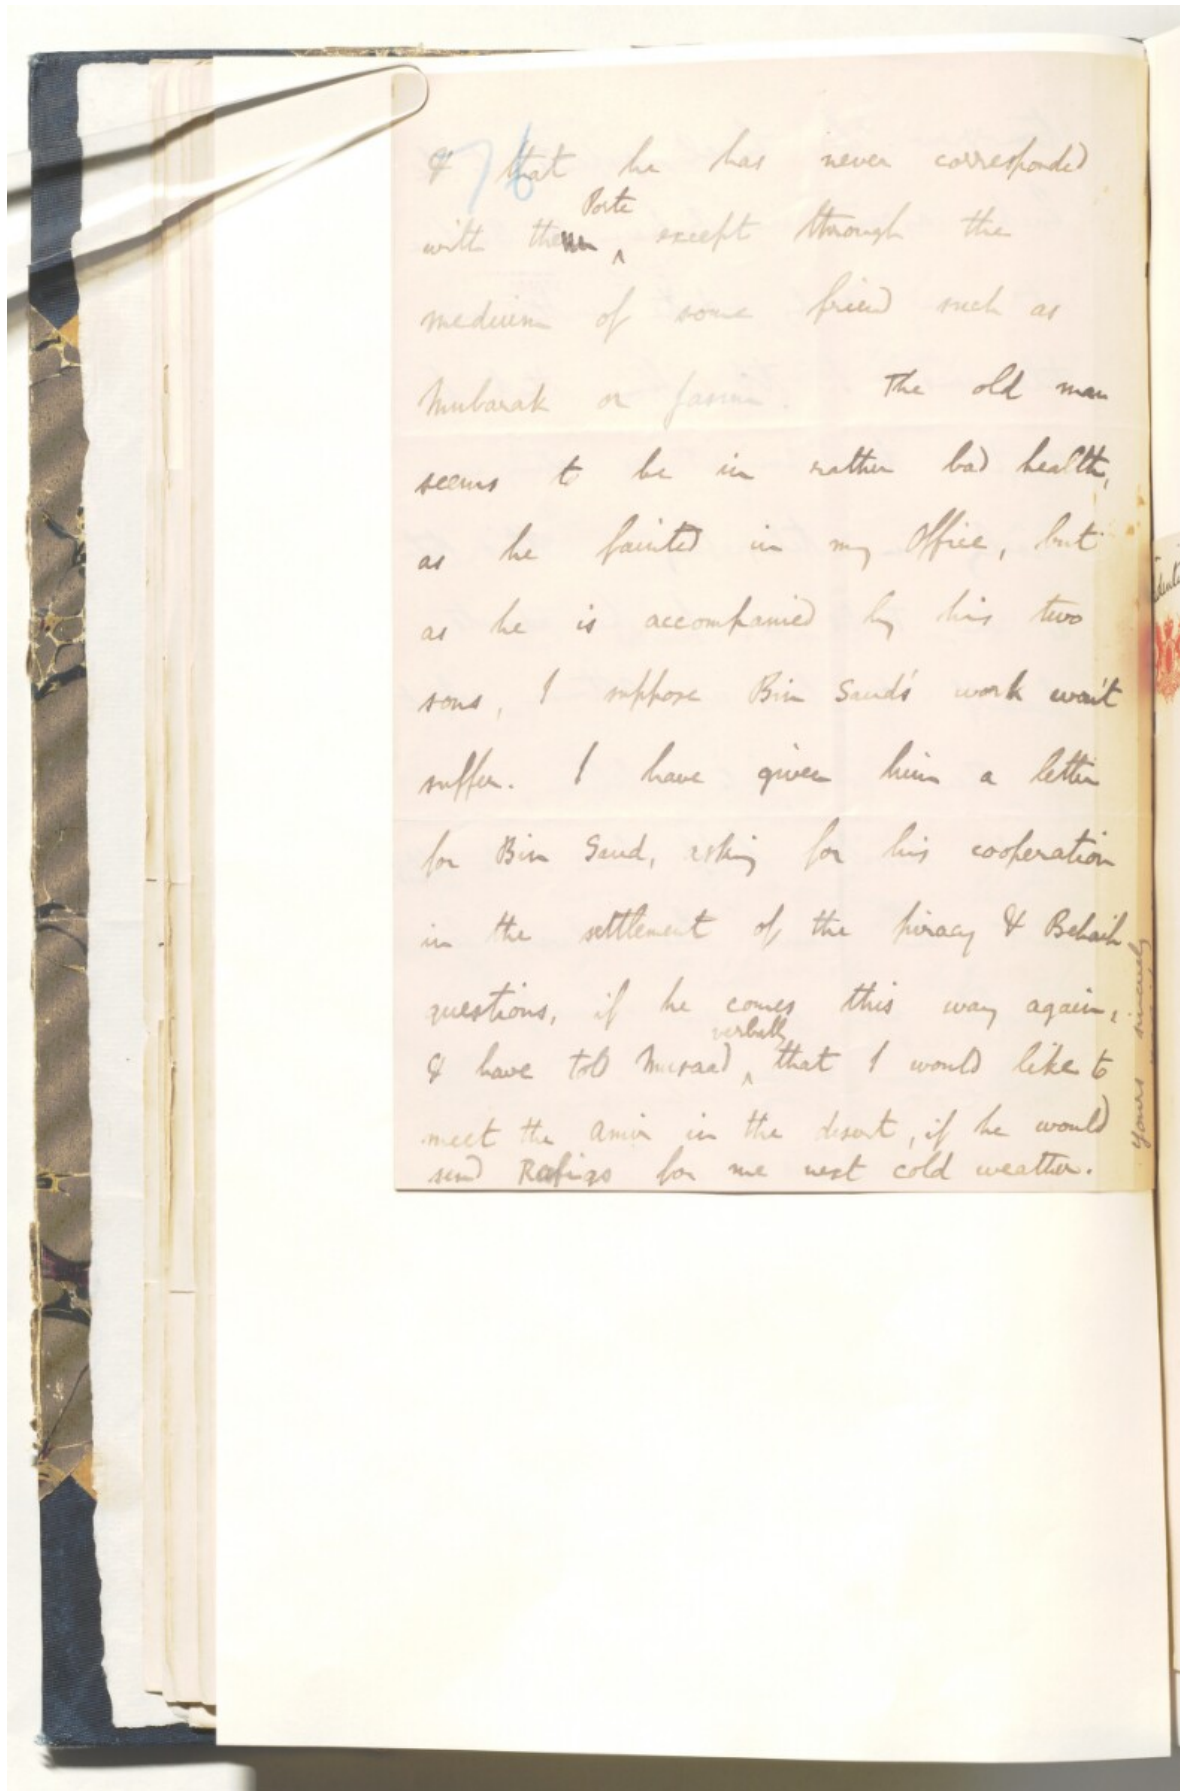 76
& that he has never corresponded
Porte
with the except through the
medium of some friend such as
Mubarak or Jasim. The old man
seems to be in rather bad health,
as he fainted in my Office, but
as he is accompanied by his two
sons, I suppose Bin Saud's work won't
suffer. I have given him a letter
for Bin Saud, asking for his cooperation
in the settlement of the piracy & Behaih
questions, if he comes this way again,
verbally
& have told Musaad ^ that I would like to
meet the Amir in the desert, if he would
send Rafiqs for me next cold weather.
Yours sincerely